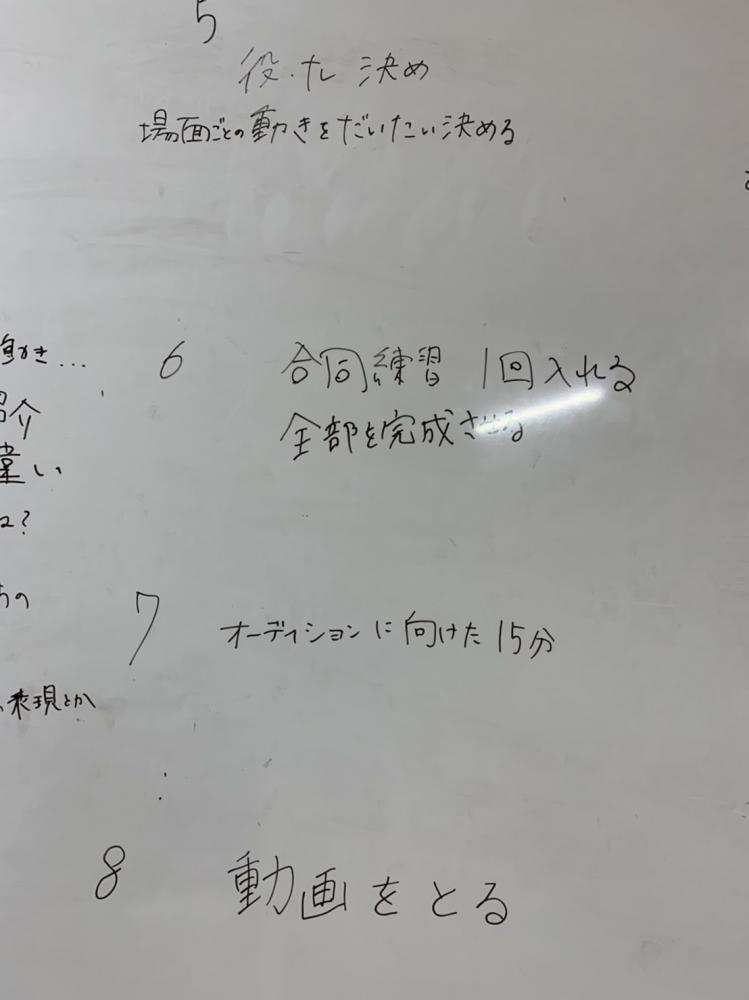 5
役・ナレ 決め
場面ごとの動きをだいたい決める
6 合同練習 1回入れる
全部を完成させる
7 オーディションに向けた15分
8 動画をとる
介
違い
?
の
表現とか